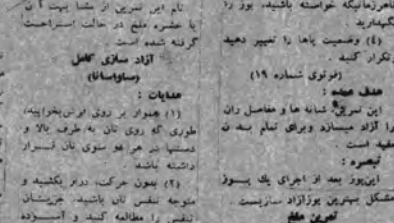 هرزمانیکه خواسته باشید، پوز را
نگهدارید .
(٤) وضعیت پاها را تغییر دهید
وتکرار کنید .
(فوتوی شماره ١٩)
هدف عمده :
این تمرین شانه ها و مفاصل ران
را آزاد میسازد وبرای تمام بدن
مفید است .
تبصره :
این پوز بعد از اجرای یك پوز
مشکل بهترین پوز آزاد سازیست .
تمرین ملخ
نام این تمرین از مشا بهت آن
با حشره ملخ در حالت استراحت
گرفته شده است
آزاد سازی کامل
(ساواسانا)
هدایات :
(١) هموار بر روی فرش بخوابید،
طوری که روی تان به طرف بالا و
دستها در هر دو سوی تان قرار
داشته باشد
(٢) بدون حرکت، دراز بکشید و
متوجه تنفس تان باشید، جریان
تنفس را مطالعه کنید و آسوده